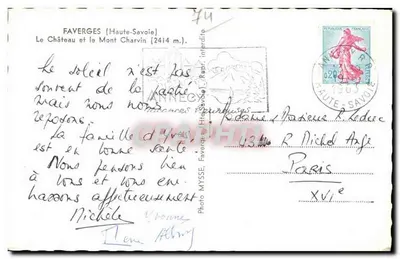 74
FAVERGES (Haute-Savoie)
Le Château et le Mont Charvin (2414 m.)
Le soleil n'est pas
souvent de la partie
mais nous nous
reposons.
La famille d'Yves
est en bonne santé
Nous pensons bien
à vous et vous em-
brassons affectueusement
Michèle
Yvonne
Photo MYSSE, Faverges (Hte-Savoie) Repr. interdite
ANNECY
ANNECY R.P.
1963
HAUTE-SAVOIE
0,20
Madame & Monsieur R. Leduc
43 R Michel Ange
Paris
XVIe